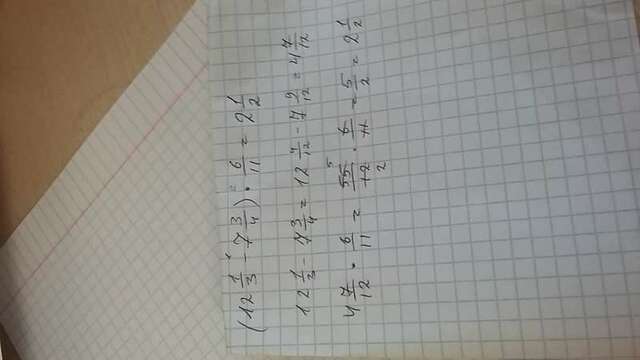 (12 1/3 - 7 3/4) · 6/11 = 2 1/2
12 1/3 - 7 3/4 = 12 4/12 - 7 9/12 = 4 7/12
4 7/12 · 6/11 = 55/12 · 6/11 = 5/2 = 2 1/2